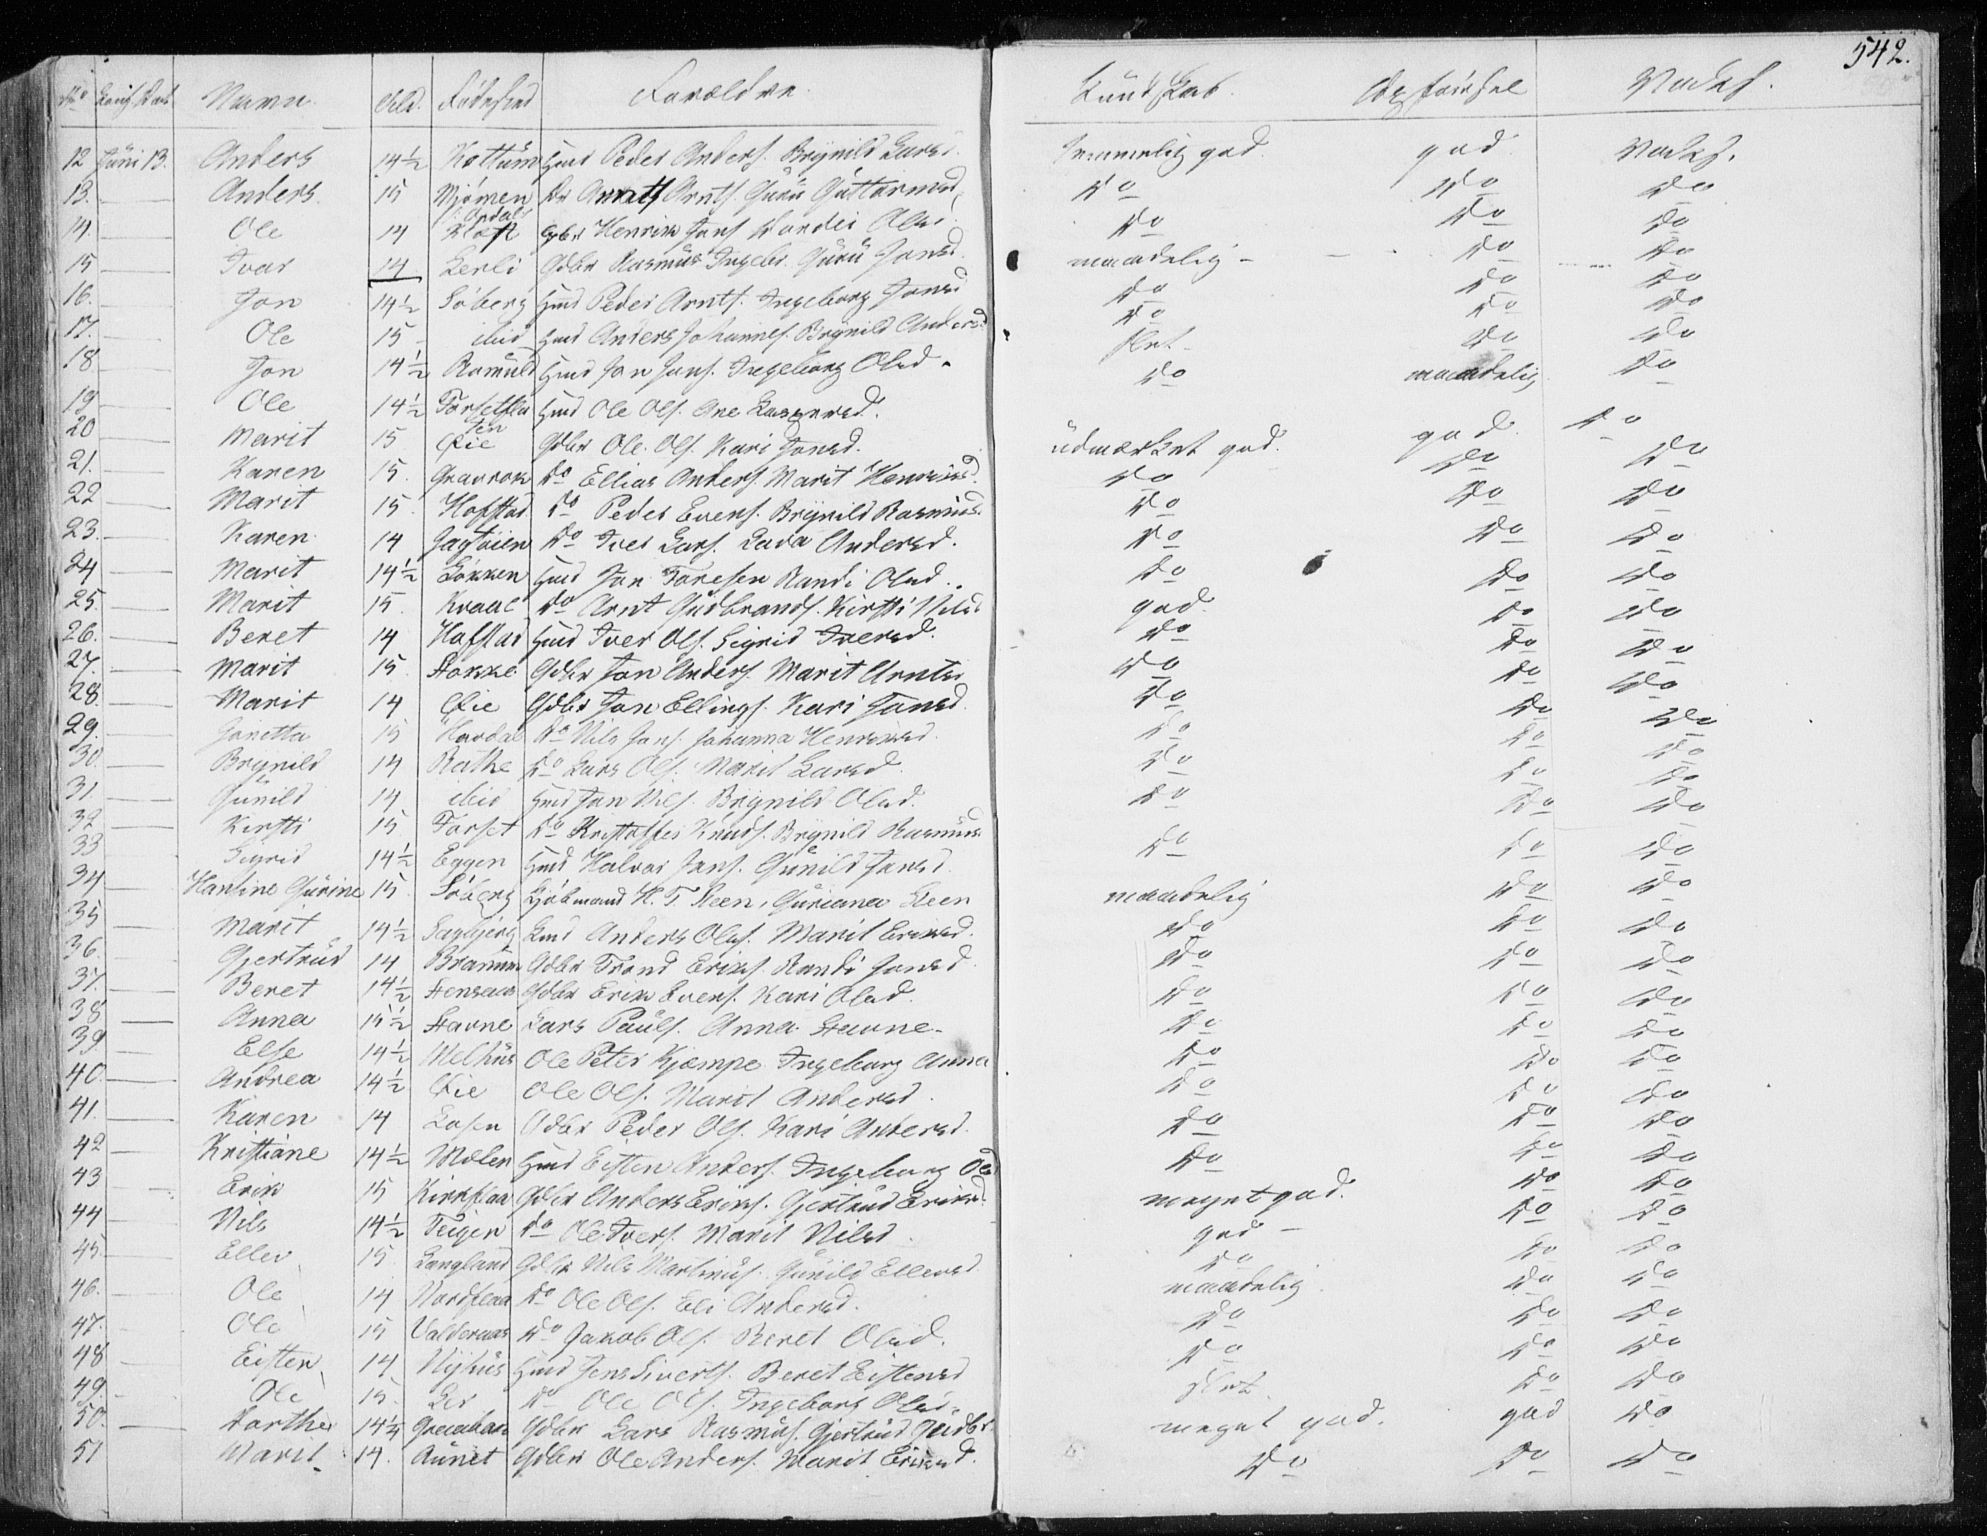 542.
No Conf. Dat. Navn. Ald. Fødested Forældre. Kundskab. Opførsel Vacks.
12 Juni 13. Anders 14½ Kattum Hmd Peder Anders. Brynild Larsd. temmelig god. god Vacks.
13. Anders 15 Mjømen Do Arnt Arnts. Guru Guttormsd Do Do Do
14. Ole 14 Henrik Jons. Olsd. Do Do Do
15 Ivar 14 Lerli Gdbr Rasmus Ingebr. Guru Jonsd. maadelig - Do Do
16. Jon 14½ Søberg Hmd Peder Arnts. Ingeborg Jonsd Do Do Do
17. Ole 15 ibid Hmd Anders Johannes. Brynild Andersd Do Do Do
18 Jon 14½ Romuld Hmd Jon Jons. Ingeborg Olsd. slet Do Do
19 Ole 14½ Forsetfla ten Hmd Ole Ols. Ane Do maadelig Do
20 Marit 15 Øie Gdbr Ole Ols. Kari Jonsd. udmærket god. god Do
21. Karen 15. Gravrok Do Ellias Anders. Marit Henriksd. Do Do Do
22 Marit 15. Hofstad Do Peder Evens. Brynild Rasmusd. Do Do Do
23. Karen 14 Jagtøien Do Iver Lars. Andersd. Do Do Do
24 Marit 14½ Løkken Hmd Jon Toresen Randi Olsd. Do Do Do
25. Marit 15. Kvaal Do Arnt Gudbrands. Kirsti Nilsd god Do Do
26. Beret 14 Hofstad Hmd Iver Ols. Sigrid Iversd. Do Do Do
27. Marit 15 Stokke Gdbr Jon Anders. Marit Arntsd Do Do Do
28. Marit 14 Øie Gdbr Jon Ellings. Kari Jonsd. Do Do Do
29. Jonetta 15 Havdal Do Nils Jons. Johanna Henriksd. Do Do Do
30. Brynild 14 Rathe Do Lars Ols. Marit Larsd. Do Do Do
31 Gunild 14 ibid Hmd Jon Nils. Brynild Olsd. Do Do Do
32 Kirsti 15 Forset Do Kristoffer Knuds. Brynild Rasmusd. Do Do Do
33 Sigrid 14½ Eggen Hmd Halvor Jons. Gunild Jonsd.
34 Hantine Gurine 15 Søberg Kjøbmand H. T. Steen, Guriana Steen maadelig Do Do
35 Marit 14½ Sagbjerg Anders Ols. Marit Eriksd. Do Do Do
36. Gjertrud 14 Gdbr Trond Eriks. Randi Jonsd Do Do Do
37. Beret 14½ Stensaas Gdbr Erik Evens. Kari Olsd. Do Do Do
38 Anna 15½ Stavne Lars Pauls. Anna Stavne. Do Do Do
39 Else 14½ Melhus Ole Peter Kjæmpe Ingeborg Anna Do Do Do
40. Andrea 14½ Øie Ole Ols. Marit Andersd. Do Do Do
41. Karen 14 Losen Gdbr Peder Ols. Kari Andersd. Do Do Do
42 Kristiane 14½ Mølen Hmd Eisten Anders. Ingeborg Ols Do Do Do
43 Erik 15 Kirkflaa Gdbr Anders Eriks. Gjertrud Eriksd. meget god. Do Do
44 Nils 14½ Teigen Do Ole Ivers. Marit Nilsd. god Do Do
45. Eller 15. Langland Gdbr Nils Martinus. Gunild Ellersd Do Do Do
46. Ole 14 Nordflaa Do Ole Ols. Eli Andersd. maadelig Do Do
47. Ole 15 Valderaas Do Jakob Ols. Beret Olsd. Do Do Do
48 Eisten 14 Nyhus Hmd Jens Siverts. Beret Eistensd Do Do Do
49. Ole 15. Ler Do Ole Ols. Ingeborg Olsd. slet Do Do
50. Marthe 14¼ Gdbr Lars Rasmus. Gjertrud meget god. god Do
51 Marit 14. Aunet Gdbr Ole Anders. Marit Eriksd. Do Do Do